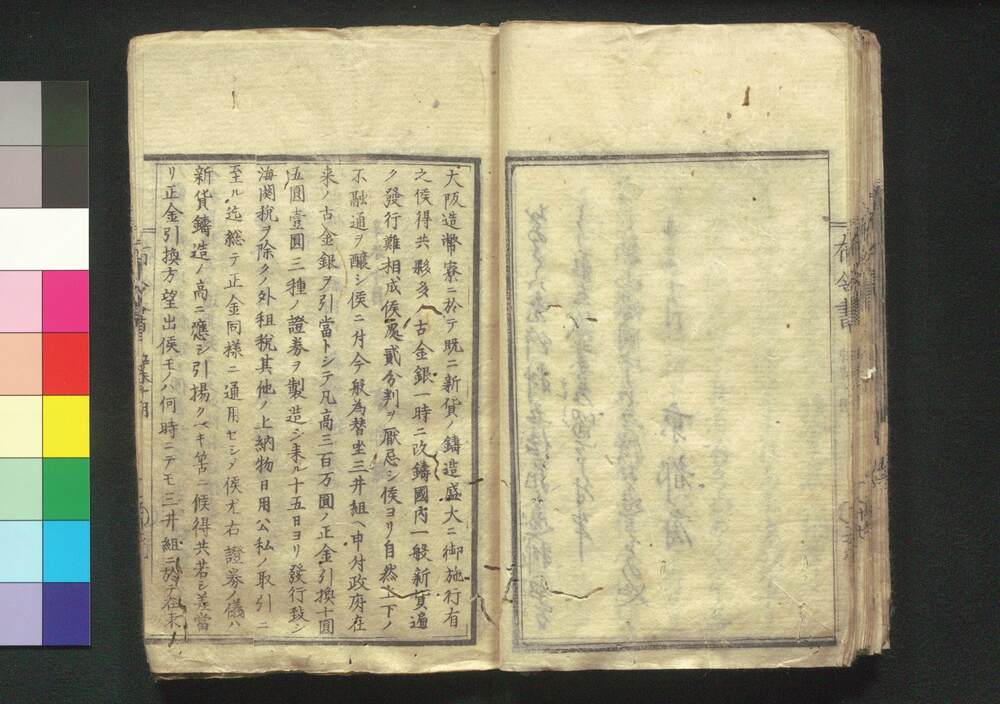 布令書
大阪造幣寮ニ於テ既ニ新貨ノ鑄造盛大ニ御施行有
之候得共夥多ノ古金銀一時ニ改鑄國内一般新貨遍
ク發行難相成候處貳分判ヲ厭忌シ候ヨリ自然上下ノ
不融通ヲ醸シ候ニ付今般為替坐三井組ヘ申付政府在
来ノ古金銀ヲ引當トシテ凡高三百万圓ノ正金引換十圓
五圓壹圓三種ノ證券ヲ製造シ来ル十五日ヨリ發行致シ
海関税ヲ除クノ外租税其他ノ上納物日用公私ノ取引ニ
至ル迄総テ正金同様ニ通用セシメ候尤右證券ノ儀ハ
新貨鑄造ノ高ニ應シ引揚クヘキ筈ニ候得共若シ差當
リ正金引換方望出候モノハ何時ニテモ三井組ニ於テ在来ノ